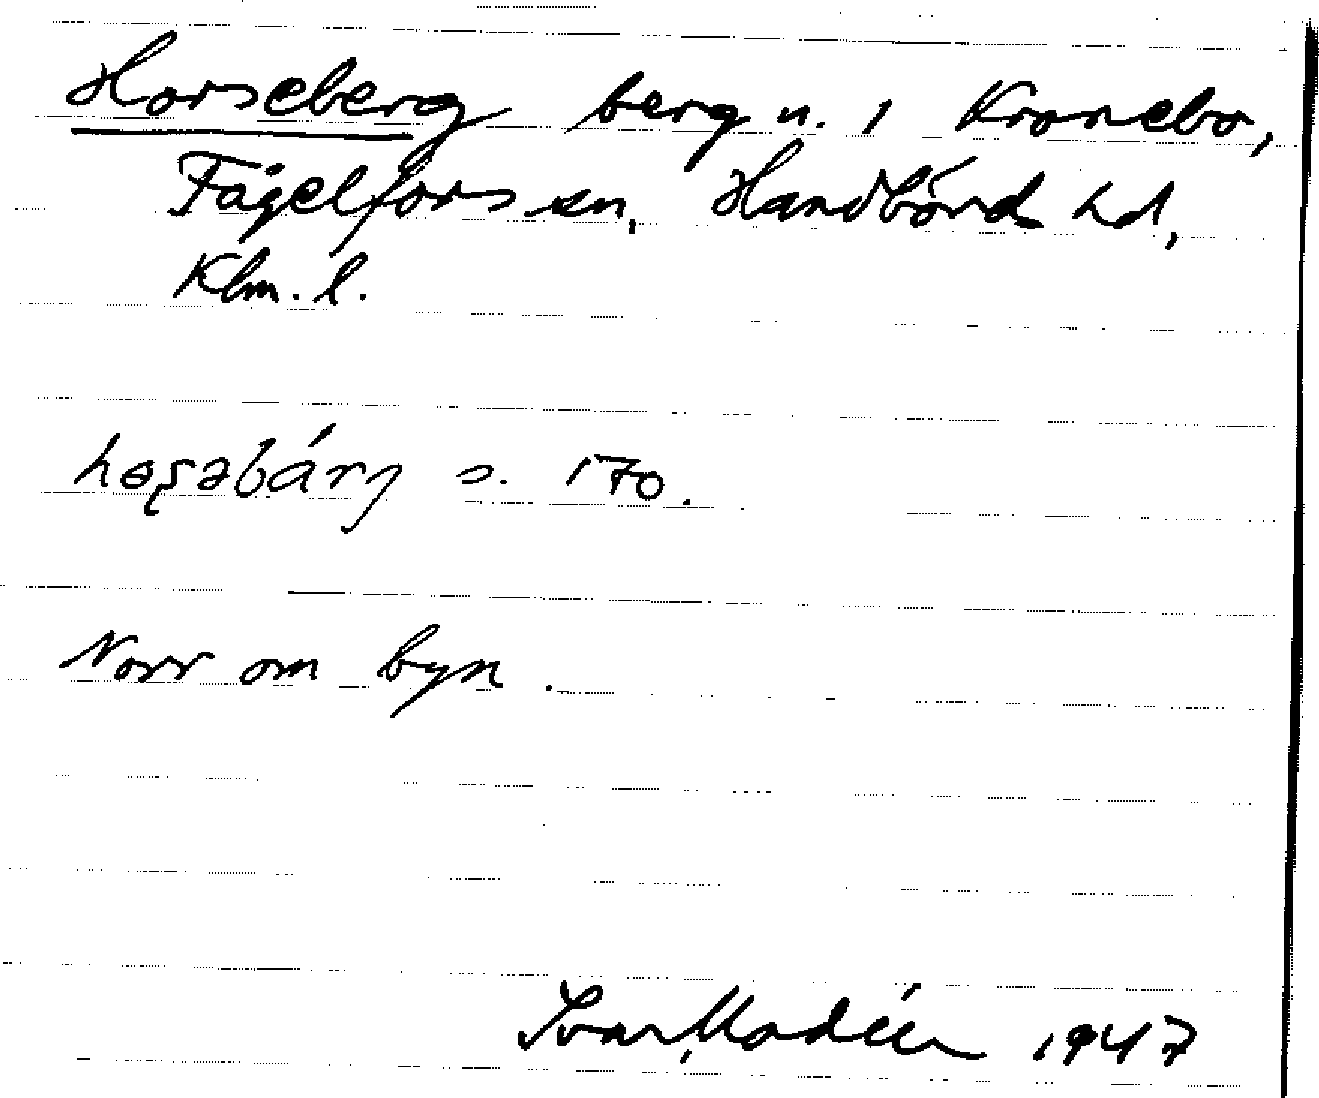 Horseberg berg n. i Kronebo,
Fågelfors sn, Handbörd hd,
Klm. l.
s. 170.
Norr om byn.
Ivar Modéer 1947